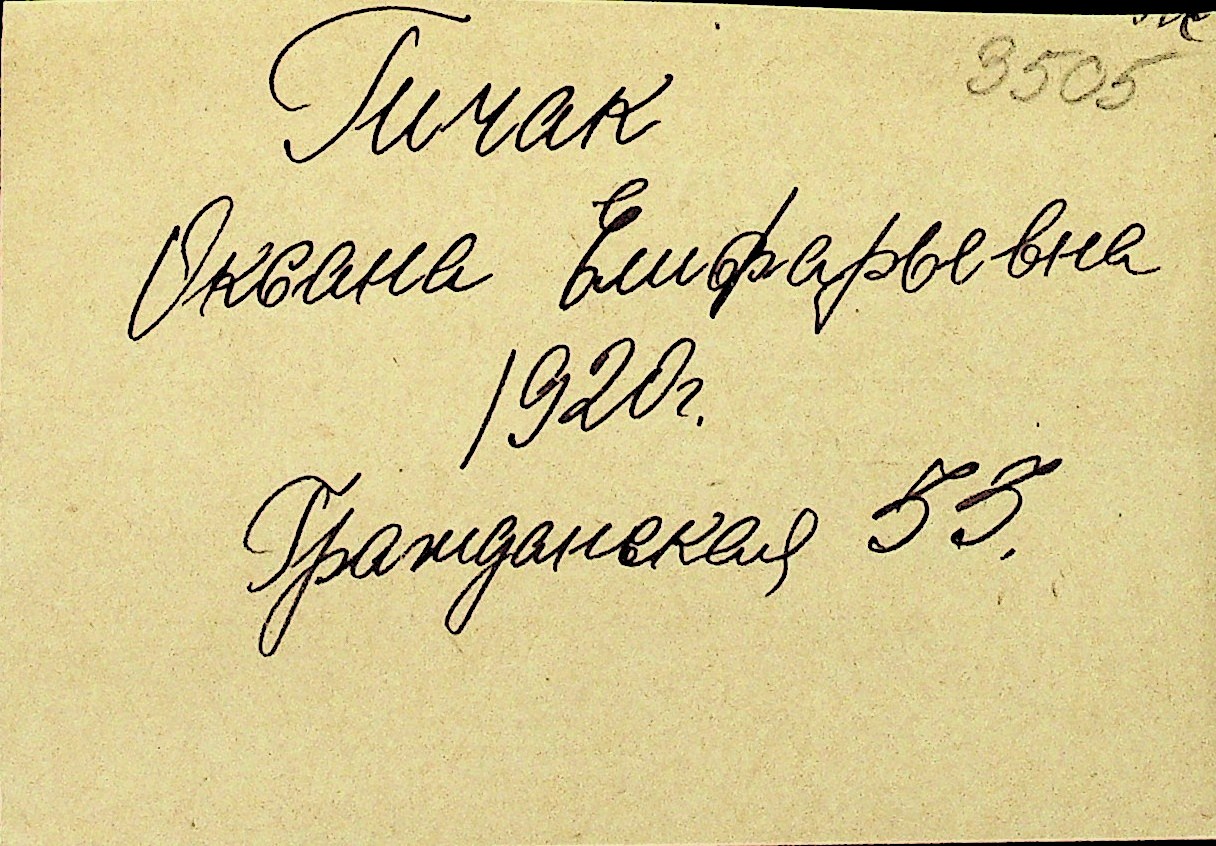 3505
Гичак
Оксана Елифарьевна
1920г.
Гражданская 53.